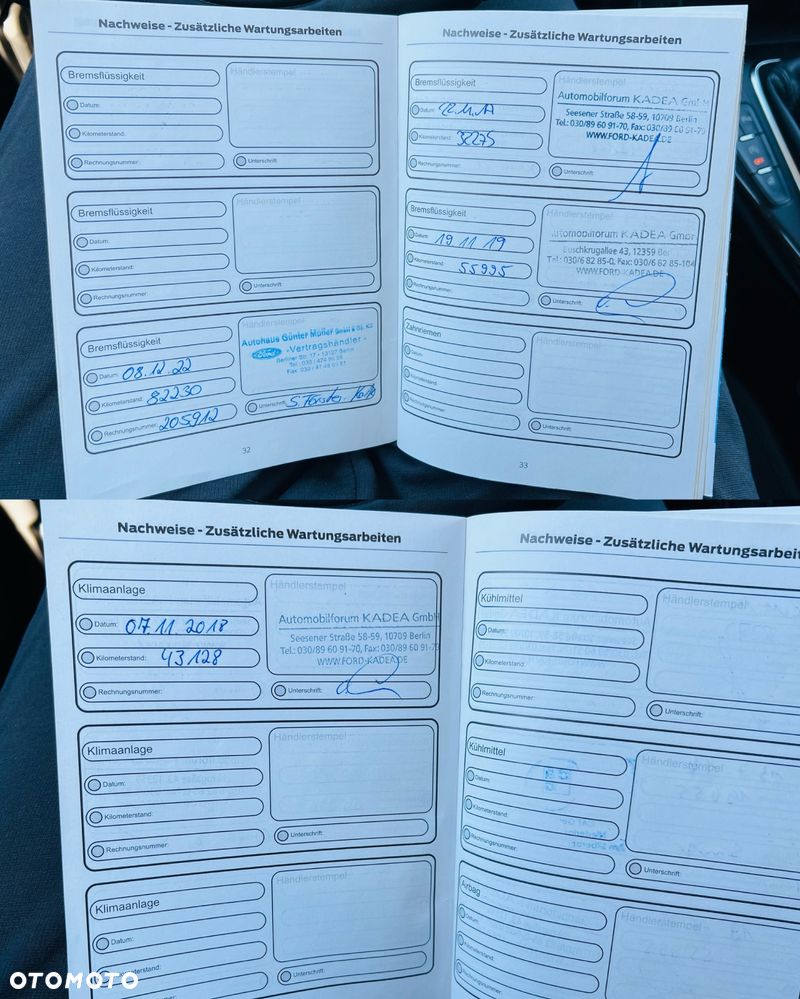 Nachweise - Zusätzliche Wartungsarbeiten
Bremsflüssigkeit
Händlerstempel
Datum:
Kilometerstand:
Rechnungsnummer:
Unterschrift:
Bremsflüssigkeit
Händlerstempel
Datum:
Kilometerstand:
Rechnungsnummer:
Unterschrift:
Bremsflüssigkeit
Händlerstempel
Autohaus Günter Müller GmbH & Co. KG
Ford -Vertragshändler-
Berliner Str. 17 - 13127 Berlin
Datum: 08.12.22
Kilometerstand: 82230
Rechnungsnummer: 205912
Unterschrift:
32
Nachweise - Zusätzliche Wartungsarbeiten
Bremsflüssigkeit
Händlerstempel
Automobilforum KADEA GmbH
Seesener Straße 58-59, 10709 Berlin
Tel.: 030/89 60 91-70, Fax: 030/89 60 91-79
WWW.FORD-KADEA.DE
Datum:
Kilometerstand: 32275
Rechnungsnummer:
Unterschrift:
Bremsflüssigkeit
Händlerstempel
Automobilforum KADEA GmbH
Buschkrugallee 43, 12359 Ber
Tel.: 030/6 82 85-0, Fax: 030/6 82 85-104
WWW.FORD-KADEA.DE
Datum: 19 11 19
Kilometerstand: 55995
Rechnungsnummer:
Unterschrift:
Zahnriemen
Händlerstempel
Datum:
Kilometerstand:
Rechnungsnummer:
Unterschrift:
33
Nachweise - Zusätzliche Wartungsarbeiten
Klimaanlage
Händlerstempel
Automobilforum KADEA GmbH
Seesener Straße 58-59, 10709 Berlin
Tel.: 030/89 60 91-70, Fax: 030/89 60 91-7
WWW.FORD-KADEA.DE
Datum: 07.11.2018
Kilometerstand: 43128
Rechnungsnummer:
Unterschrift:
Klimaanlage
Händlerstempel
Datum:
Kilometerstand:
Rechnungsnummer:
Unterschrift:
Klimaanlage
Händlerstempel
Datum:
meterstand:
Unterschrift:
Nachweise - Zusätzliche Wartungsarbeiten
Kühlmittel
Händlerstempel
Datum:
Kilometerstand:
Rechnungsnummer:
Unterschrift:
Kühlmittel
Händlerstempel
Datum:
Kilometerstand:
Rechnungsnummer:
Unterschrift:
Airbag
Händlerstempel
Datum:
Kilometerstand:
Rechnungsnummer:
Unterschrift:
OTOMOTO